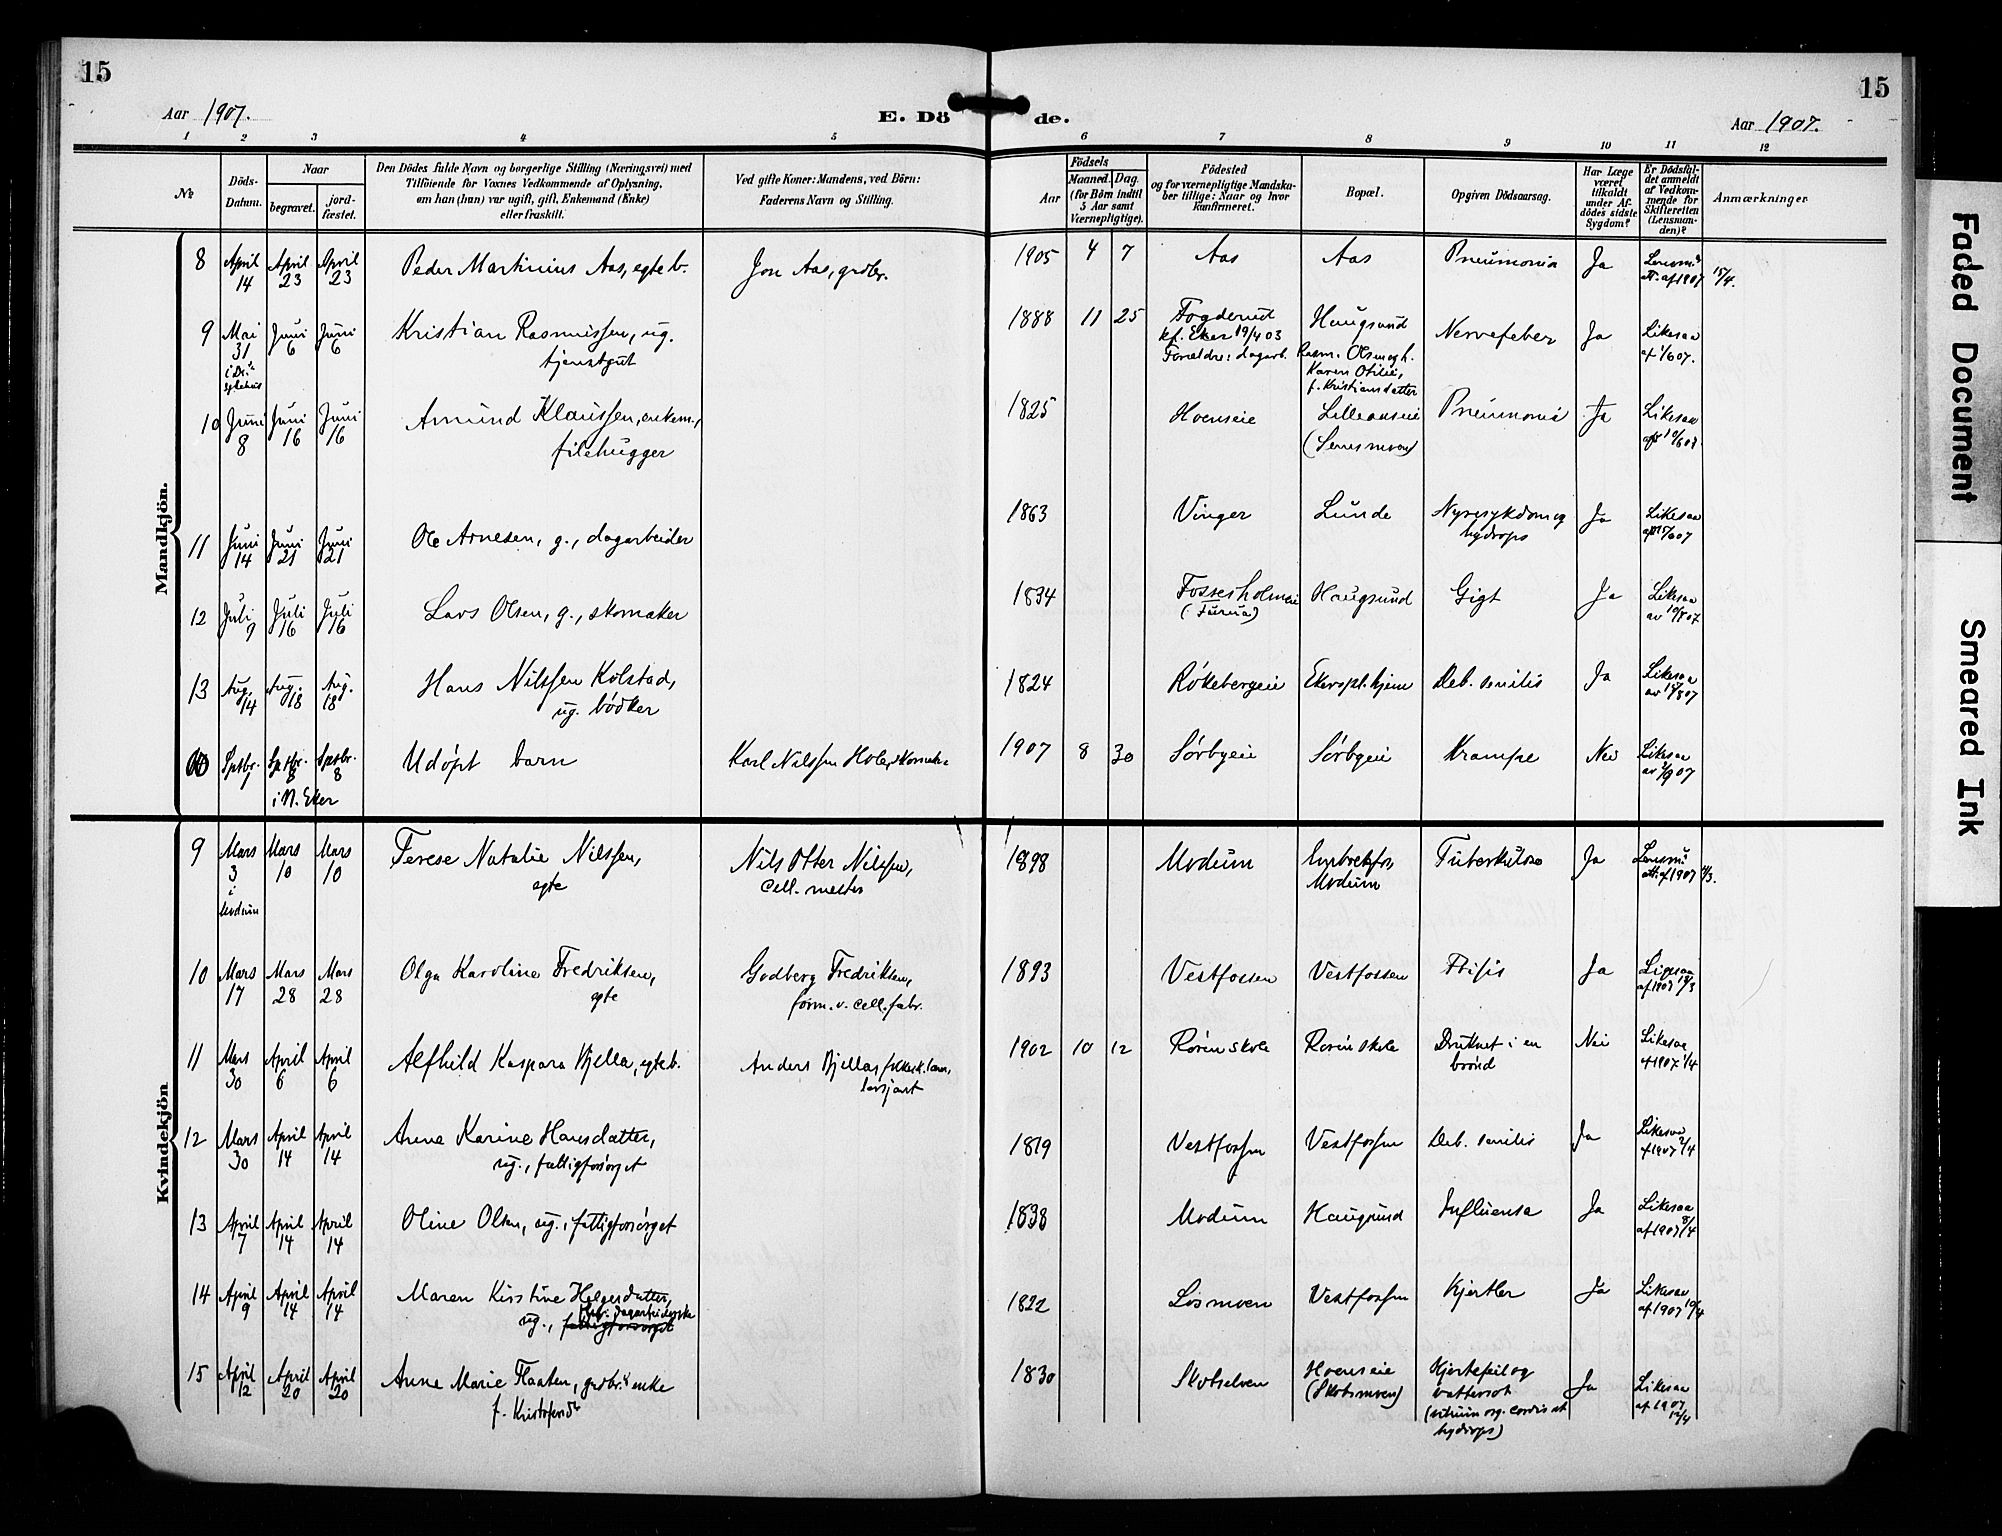 15
15
Aar 1907.
E. Dö
de.
Aar 1907.
1 2 3 4 5 6 7 8 9 10 11 12
No
Döds-
Datum.
Naar
begravet.
jord-
fæstet.
Den Dödes fulde Navn og borgerlige Stilling (Næringsvei) med
Tilföiende for Voxnes Vedkommende af Oplysning,
om han (hun) var ugift, gift, Enkemand (Enke)
eller fraskilt.
Ved gifte Koner: Mandens, ved Börn:
Faderens Navn og Stilling.
Födsels
Aar
Maaned. Dag.
(for Börn indtil
5 Aar samt
Værnepligtige).
Födested
og for værnepligtige Mandska-
ber tillige: Naar og hvor
konfirmeret.
Bopæl.
Opgiven Dödsaarsag.
Har Læge
været
tilkaldt
under Af-
dödes sidste
Sygdom?
Er Dödsfal-
det anmeldt
af Vedkom-
mende for
Skifteretten
(Lensman-
den)?
Anmærkninger
Mandkjön.
8 April 14 April 23 April 23 Peder Martinius Aas, egte b. Jon Aas, grdbr. 1905 4 7 Aas Aas Pneumonia Ja att. af 1907 15/4.
9 Mai 31 Juni 6 Juni 6 Kristian Rasmussen, ug. 1888 11 25 Fogderud Haugsund Nervefeber Ja Likesaa
tjenestgut kf. Eker 19/4 03 af 1/6 07.
Forældre: dagarb. Rasm. Olsen og h.
Karen Otilie,
f. Kristiansdatter
10 Juni 8 Juni 16 Juni 16 Amund Klaussen, enkem., 1825 Hoenseie Pneumoni Ja Likesaa
filehugger 10/6 07
11 Juni 14 Juni 21 Juni 21 Ole Arnesen, g., dagarbeider 1863 Vinger Lunde Nyresykdom og Ja Likesaa
hydrops 15/6 07
12 Juli 9 Juli 16 Juli 16 Lars Olsen, g., skomaker 1834 Fossesholmeie Haugsund Gigt Ja Likesaa
(Furua) av 10/8 07
13 Aug. 14 Aug. 18 Aug. 18 Hans Nilssen Kolstad, 1824 Røkebergeie Ekers pl.hjem Deb. senilis Ja Likesaa
ug. bødker
Septbr. 1 Septbr. 8 Septbr. 8 Udøpt barn Karl Nilssen Hole, skomaker 1907 8 30 Sørbyeie Sørbyeie Krampe Nei Likesaa
i N. Eker
Kvindekjön
9 Mars 3 Mars 10 Mars 10 Terese Natalie Nilssen, Nils Otter Nilssen, 1898 Modum Tuberkulose Ja
i Modum egte cell. mester Modum att. af 1907
10 Mars 17 Mars 28 Mars 28 Olga Karoline Fredriksen, Godberg Fredriksen, 1893 Vestfossen Vestfossen Ftisis Ja
egte form. v. cell. fabr. af 1907
11 Mars 30 April 6 April 6 Alfhild Kaspara Bjella, egte b. Anders Bjella, 1902 10 12 Roren skole Roren skole Druknet i en Nei Likesaa
brønd af 1907 1/4
12 Mars 30 April 14 April 14 Anne Karine Hansdatter, 1819 Vestfossen Vestfossen Deb. senilis Ja Likesaa
ug., fattigforsørget af 1907 2/4
13 April 7 April 14 April 14 Oline Olsen, ug., fattigforsørget 1838 Modum Haugsund Influensa Ja Likesaa
af 1907 8/4
14 April 9 April 14 April 14 Maren Kirstine Helgesdatter, 1822 Losmoen Vestfossen Kjertler Ja Likesaa
ug., fattigforsørget dagarbeiderske af 1907 10/4
15 April 12 April 20 April 20 Anne Marie Flaaten, grdbr.s enke 1830 Skotselven Hoenseie Kjertefeil og Ja Likesaa
f. Kristofersdr (Skotsmoen) vattersot af 1907 12/4
(vitium org. cordis et
hydrops)
Faded Document
Smeared Ink